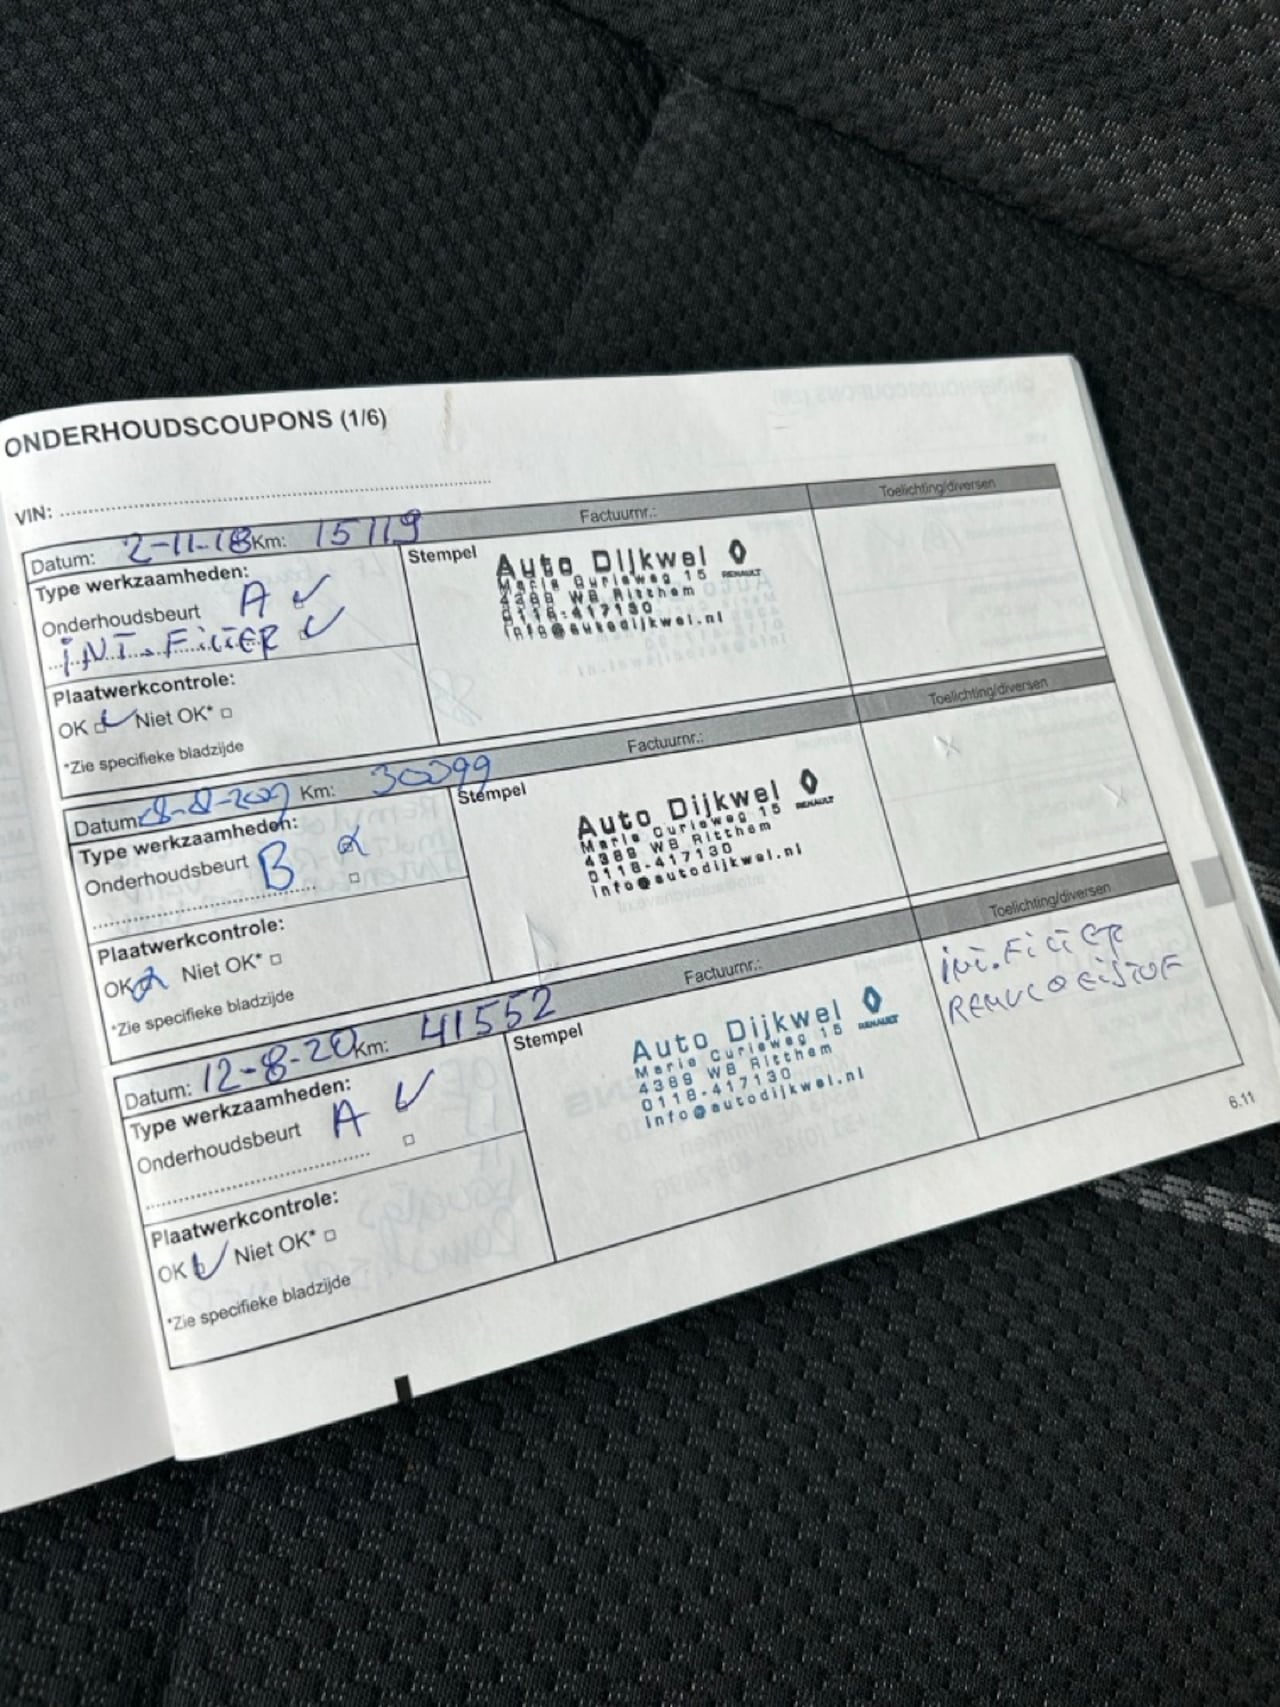 ONDERHOUDSCOUPONS (1/6)
VIN:
Datum: 2-11-18 Km: 15119
Factuurnr.:
Toelichting/diversen
Type werkzaamheden:
Onderhoudsbeurt A
INT. FILTER
Stempel
Auto Dijkwel
RENAULT
Marie Curieweg 15
4389 WB Ritthem
0118-417130
info@autodijkwel.nl
Plaatwerkcontrole:
OK Niet OK*
*Zie specifieke bladzijde
Datum: Km:
Factuurnr.:
Toelichting/diversen
Type werkzaamheden:
Onderhoudsbeurt B
Stempel
Auto Dijkwel
RENAULT
Marie Curieweg 15
4389 WB Ritthem
0118-417130
info@autodijkwel.nl
Plaatwerkcontrole:
OK Niet OK*
*Zie specifieke bladzijde
Datum: 12-8-20 Km: 41552
Factuurnr.:
Toelichting/diversen
INT. FILTER
REMVLOEISTOF
Type werkzaamheden:
Onderhoudsbeurt A
Stempel
Auto Dijkwel
RENAULT
Marie Curieweg 15
4389 WB Ritthem
0118-417130
info@autodijkwel.nl
Plaatwerkcontrole:
OK Niet OK*
*Zie specifieke bladzijde
6.11